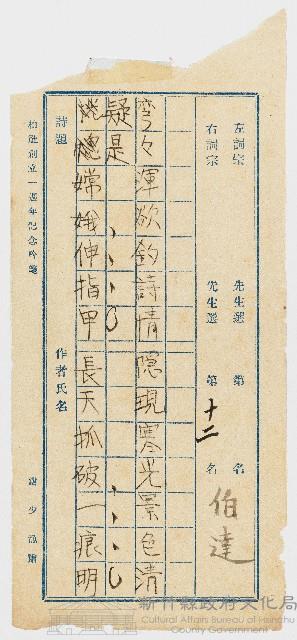 左詞宗 先生選 第 名
右詞宗 先生選 第 十二 名
伯達
彎々渾欲釣詩情隠現寒光景色清
疑是、、、。、、、。
嫦娥伸指甲長天抓破一痕明
詩題 作者氏名
柏社創立一週年記念吟箋
新竹縣政府文化局
Cultural Affairs Bureau of Hsinchu
County Government